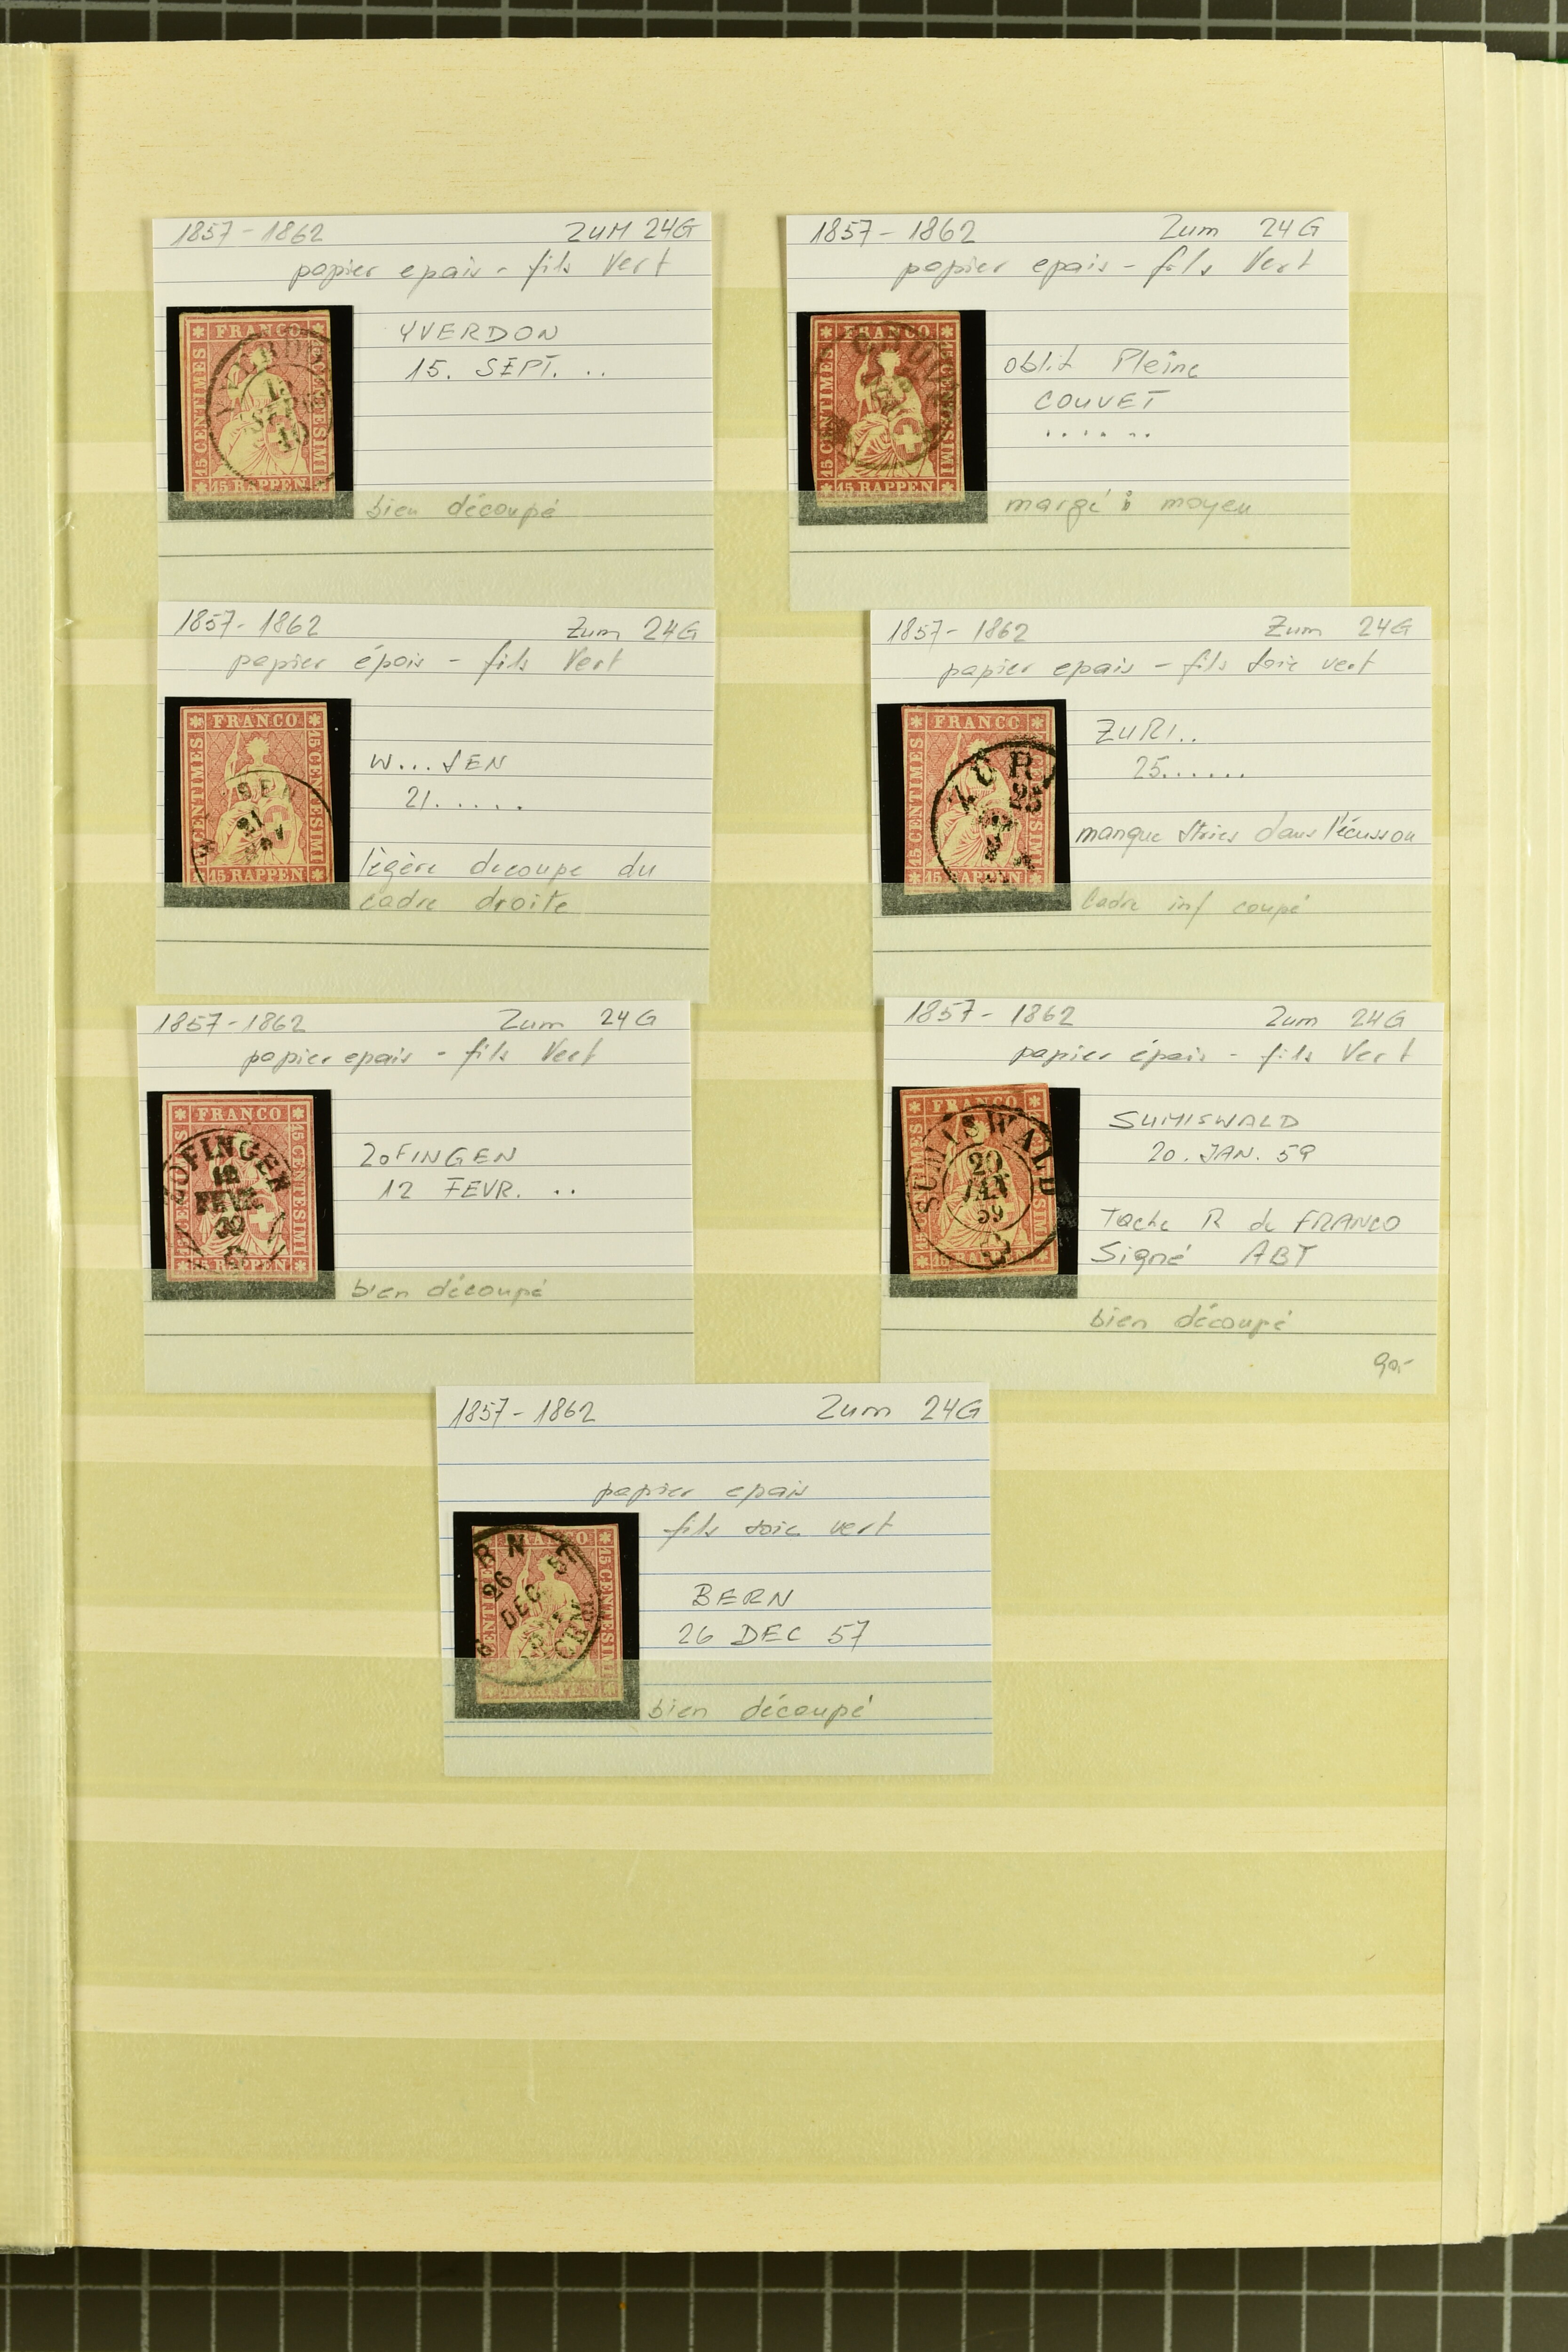 1857-1862 ZUM 24G
papier epais - fils Vert
FRANCO
15 CENTIMES
15 CENTESIMI
15 RAPPEN
YVERDON
15. SEPT. ..
bien découpé
1857-1862 Zum 24G
papier epais - fils Vert
FRANCO
15 CENTIMES
15 CENTESIMI
15 RAPPEN
oblit Pleine
COUVET
......
margé moyen
1857-1862 Zum 24G
papier épais - fils Vert
FRANCO
15 CENTIMES
15 CENTESIMI
15 RAPPEN
SEN
21
W...SEN
21.....
légère decoupe du
cadre droite
1857-1862 Zum 24G
papier epais - fils soie vert
FRANCO
15 CENTIMES
CENTESIMI
15 RAPPEN
ZÜR
25
ZURI..
25......
manque stries dans l'écusson
Cadre inf coupé
1857-1862 Zum 24G
papier epais - fils Vert
FRANCO
15 CENTESIMI
RAPPEN
ZOFINGEN
12
FEVR
ZOFINGEN
12 FEVR. ..
bien découpé
1857-1862 Zum 24G
papier épais - fils Vert
FRANCO
SUMISWALD
20
JAN
59
SUMISWALD
20. JAN. 59
Tache R de FRANCO
Signé ABT
bien découpé
90.-
1857-1862 Zum 24G
papier epais
fils soie vert
FRANCO
CENTIMES
15 CENTESIMI
15 RAPPEN
RN
26
DEC
57
BERN
26 DEC 57
bien découpé